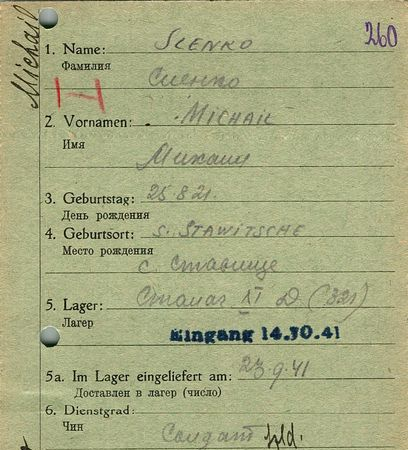 Michail
1. Name: SLENKO 260
Фамилия
Сленко
2. Vornamen: MICHAIL
Имя
Михаил
3. Geburtstag: 25 8 21.
День рождения
4. Geburtsort: S. STAWITSCHE
Место рождения
с. Ставище
5. Lager: Сталаг XI D (321)
Лагер
Eingang 14.10.41
5a. Im Lager eingeliefert am: 23.9.41
Доставлен в лагер (число)
6. Dienstgrad:
Чин
Солдат Sold.